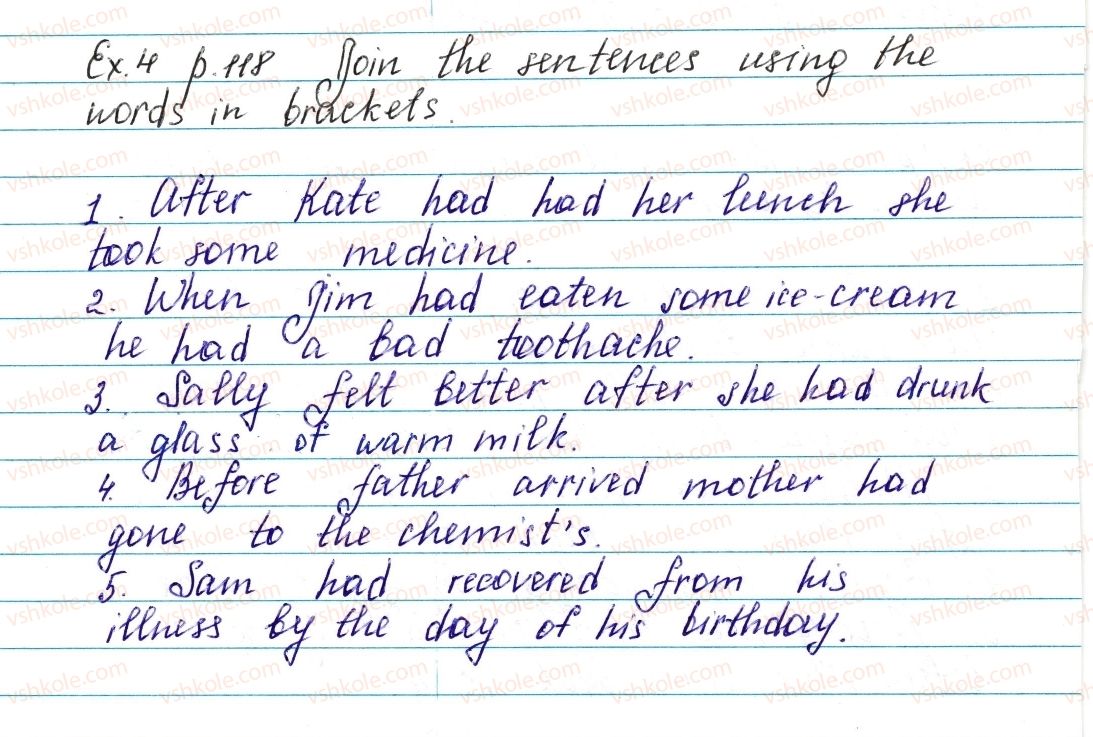 Ex.4 p.118 Join the sentences using the
words in brackets.
1. After Kate had had her lunch she
took some medicine.
2. When Jim had eaten some ice-cream
he had a bad toothache.
3. Sally felt better after she had drunk
a glass of warm milk.
4. Before father arrived mother had
gone to the chemist's.
5. Sam had recovered from his
illness by the day of his birthday.
vshkole.com